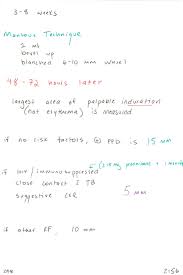 3-8 weeks
Mantoux Technique
bevel up
blanched 6-10 mm wheal
48-72 hours later
largest area of palpable induration
(not erythema) is measured
if no risk factors, ⊕ PPD is 15 mm
if HIV / immunosuppressed
close contact c̄ TB
suggestive CXR
5 mm
if other RF, 10 mm